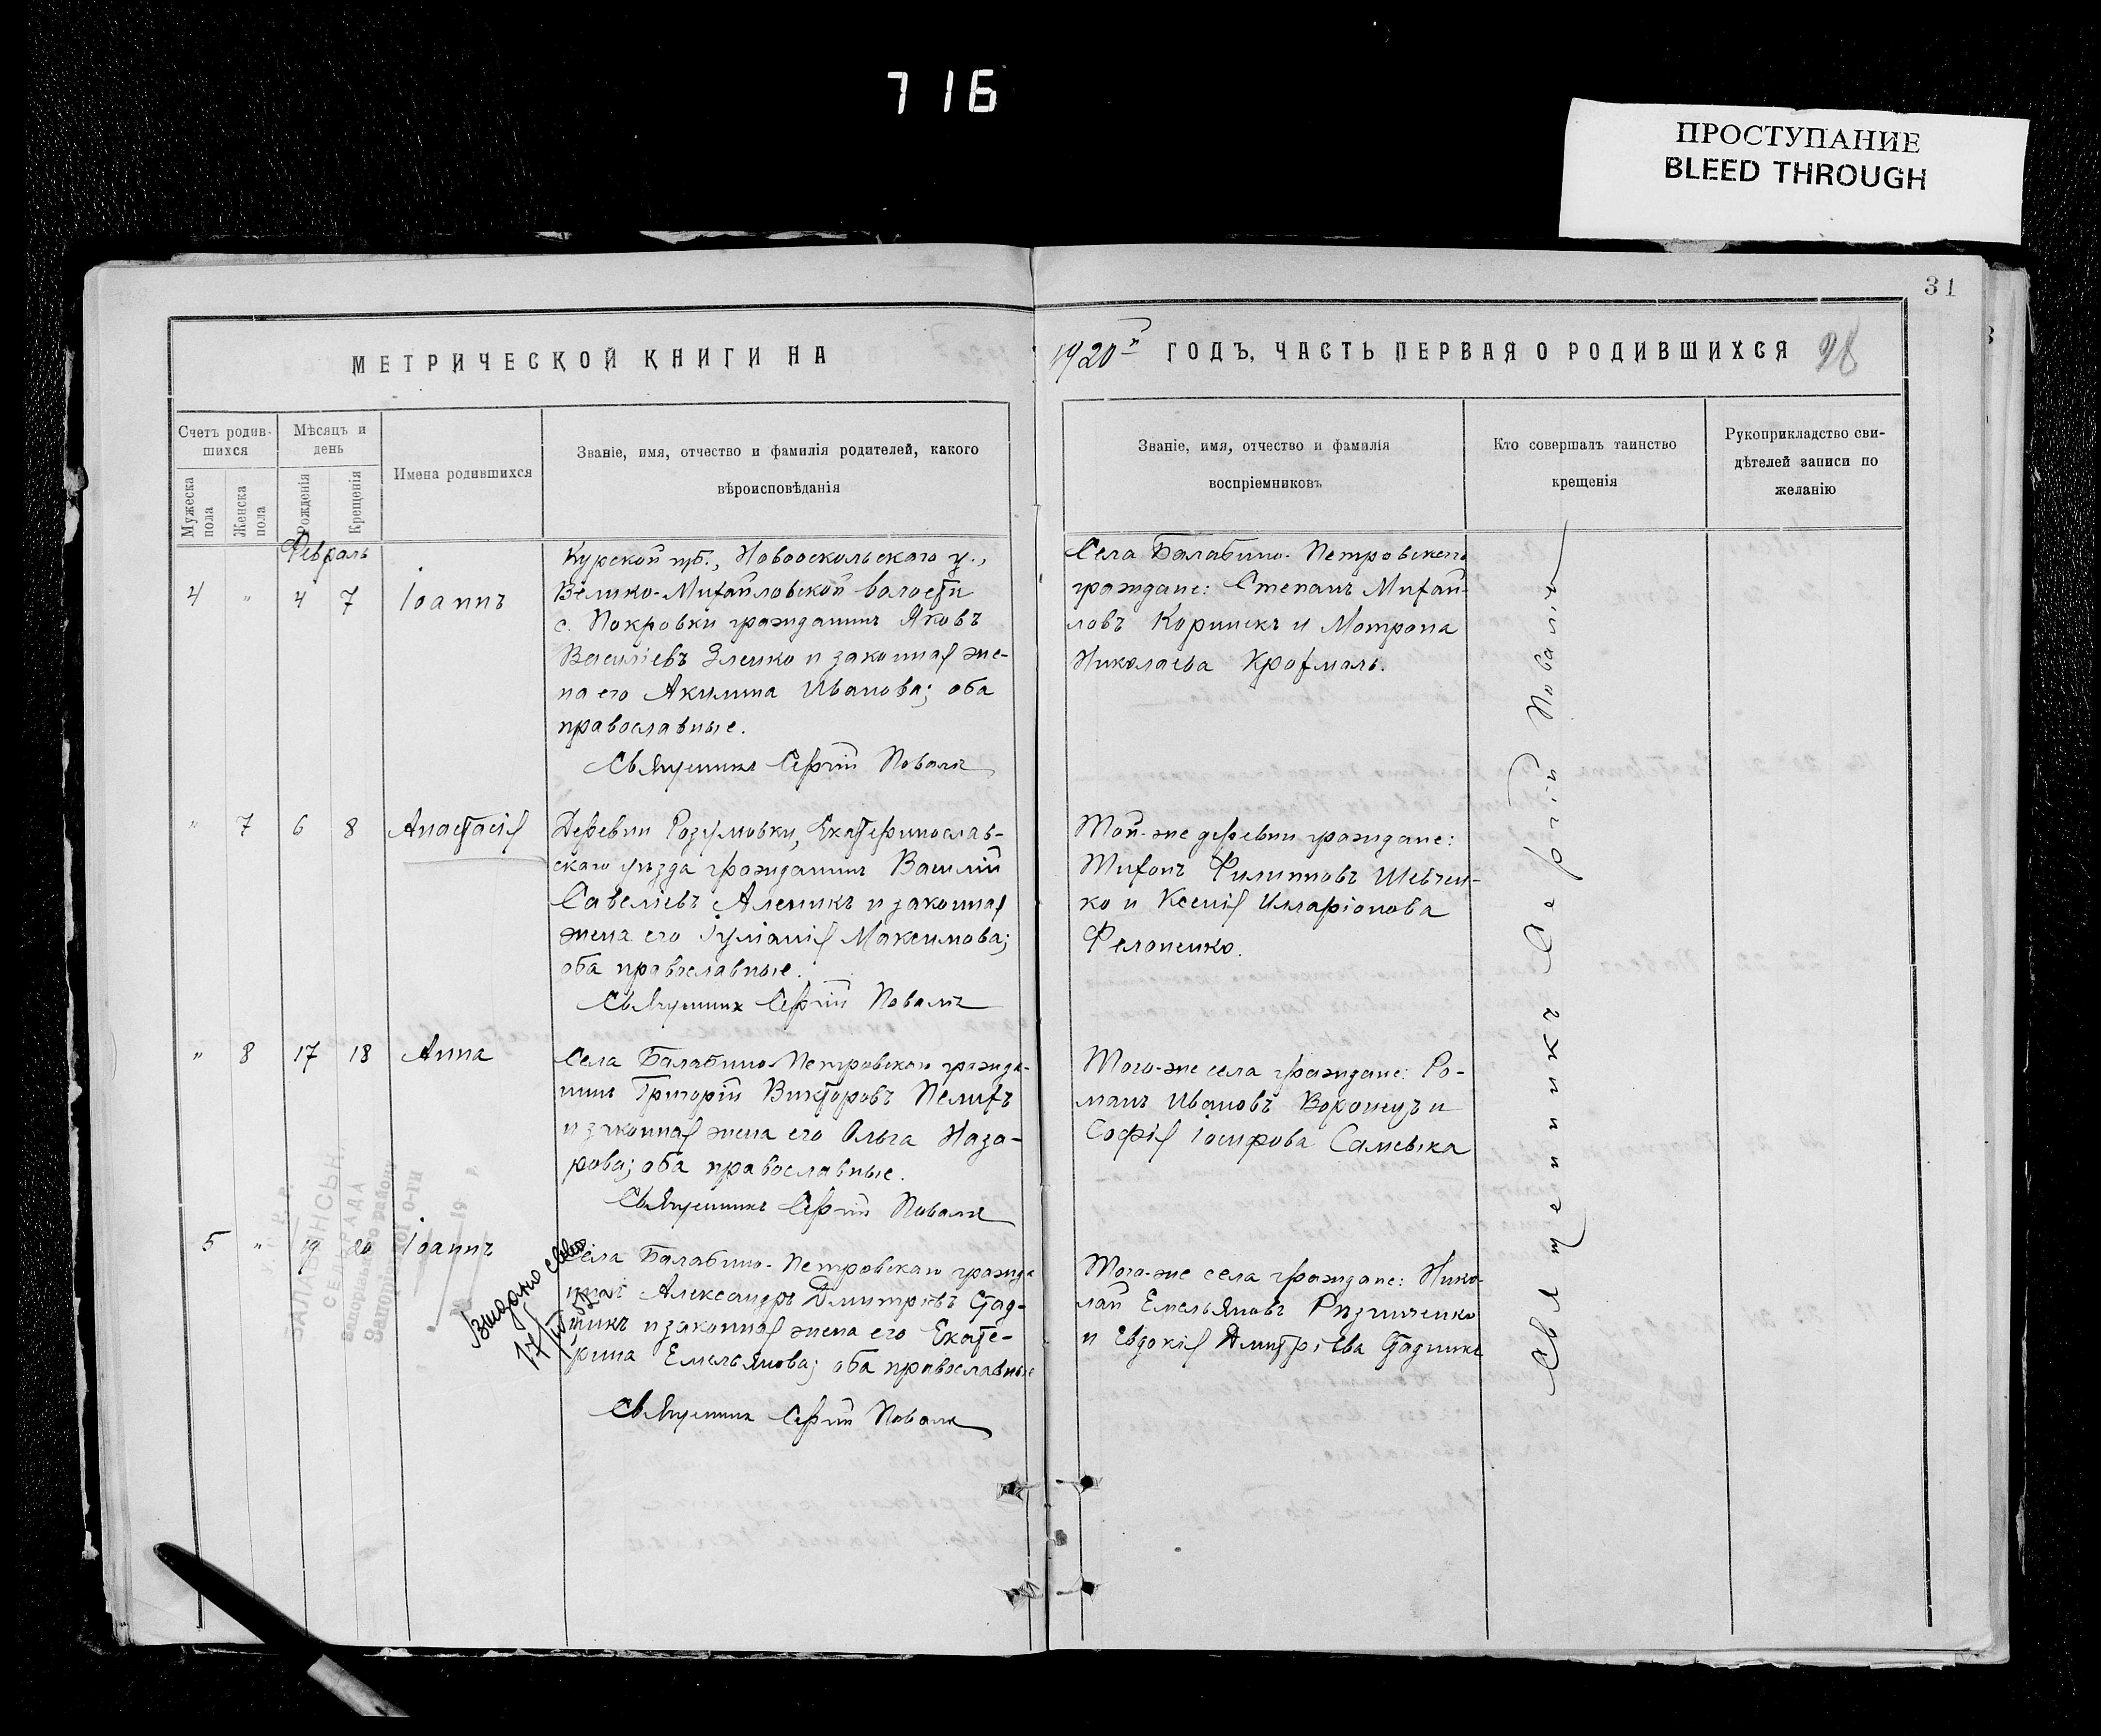 716
ПРОСТУПАНИЕ
BLEED THROUGH
31
МЕТРИЧЕСКОЙ КНИГИ НА
1920й ГОДЪ, ЧАСТЬ ПЕРВАЯ О РОДИВШИХСЯ
28
Счетъ родив-
шихся
Мужеска
пола
Женска
пола
Мѣсяцъ и
день
Рожденія
Крещенія
Имена родившихся
Званіе, имя, отчество и фамилія родителей, какого
вѣроисповѣданія
Званіе, имя, отчество и фамилія
воспріемниковъ
Кто совершалъ таинство
крещенія
Рукоприкладство сви-
дѣтелей записи по
желанію
Февраль
4 " 4 7 Іоаннъ
Курской губ., Новооскольскаго у.,
Велико-Михайловской волости
с. Покровки гражданинъ Яковъ
Василіевъ Зленко и законная же-
на его Акилина Иванова; оба
православные.
Священникъ Сергій Поваля
Села Балабино-Петровскаго
граждане: Степанъ Михай-
ловъ Коршекъ и Мотрона
Николаева Крохмаль.
" 7 6 8 Анастасія
Деревни Розумовки, Екатеринослав-
скаго уѣзда гражданинъ Василій
Савеліевъ Алешкъ и законная
жена его Іуліанія Максимова;
оба православные.
Священникъ Сергій Поваля
Той-же деревни граждане:
Тихонъ Филипповъ Шевчен-
ко и Ксенія Илларіонова
Фелоненко.
" 8 17 18 Анна
Села Балабино-Петровскаго гражда-
нинъ Григорій Викторовъ Пелихъ
и законная жена его Ольга Наза-
рова; оба православные.
Священникъ Сергій Поваля
Того-же села граждане: Ро-
манъ Ивановъ Воронецъ и
Софія Іосифова
5 " 19 20 Іоаннъ
Села Балабино-Петровскаго гражда
нинъ Александръ Дмитріевъ Стад-
никъ и законная жена его Екате-
рина Емельянова; оба православные
Священникъ Сергій Поваля
Того-же села граждане: Нико-
лай Емельяновъ Рѣзниченко
и Евдокія Дмитріева Стадникъ
Священникъ Сергій Поваля
Видано
У. С. Р. Р.
БАЛАБИНСЬК.
СЕЛЬРАДА
Запорізького району
Запорізької О-ги
19 р.